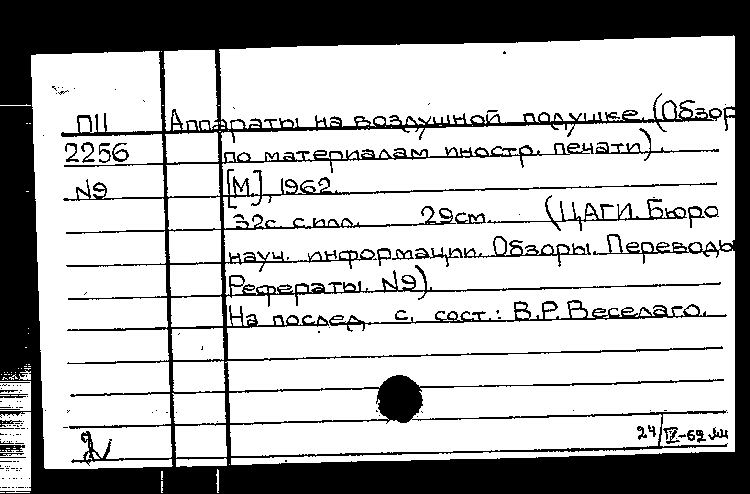 П11 Аппараты на воздушной подушке. (Обзор
2256 по материалам иностр. печати).
N9 [М.], 1962.
32с. с илл. 29см. (ЦАГИ. Бюро
науч. информации. Обзоры. Переводы
Рефераты. N9).
На послед. с. сост.: В.Р. Веселаго.
24/IV-62